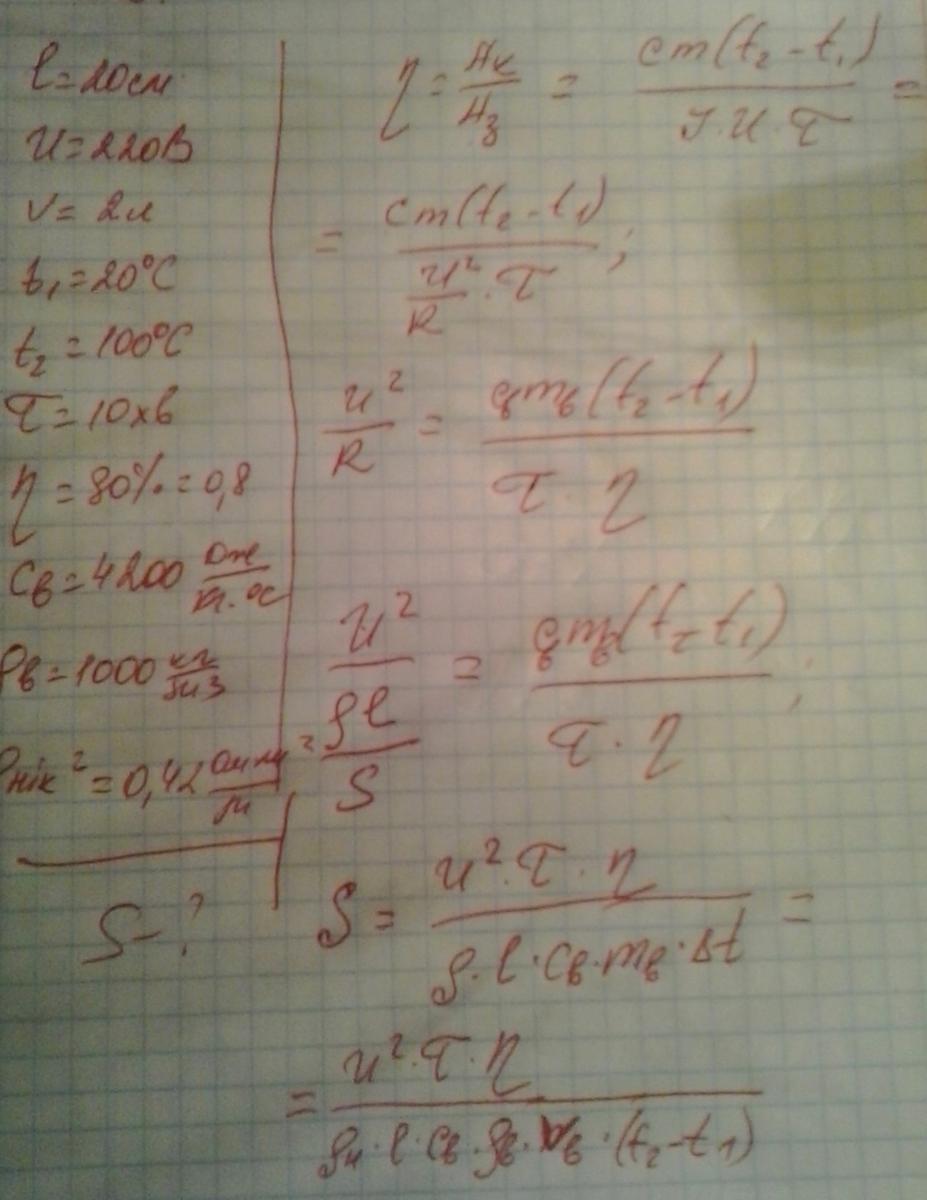 l=20см
U=220В
V=2л
t₁=20°C
t₂=100°C
τ=10хв
η=80%=0,8
Cв=4200 Дж/кг·°C
ρв=1000 кг/м³
ρнік²=0,42 Ом мм²/м
S-?
η = Aк/Aз = cm(t₂-t₁)/J·U·τ =
= cm(t₂-t₁)/U²/R·τ;
U²/R = cвmв(t₂-t₁)/τ·η
U²/ρl/S = cвmв(t₂-t₁)/τ·η;
S = U²·τ·η/ρ·l·Cв·mв·Δt =
= U²·τ·η/ρн·l·Cв·ρв·Vв·(t₂-t₁)